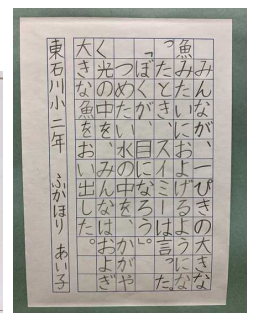 みんなが、一ぴきの大きな
魚みたいにおよげるようにな
ったとき、スイミーは言った。
「ぼくが、目になろう。」
つめたい水の中を、かがや
く光の中を、みんなはおよぎ
大きな魚をおい出した。
東石川小 二年 ふかほり あい子